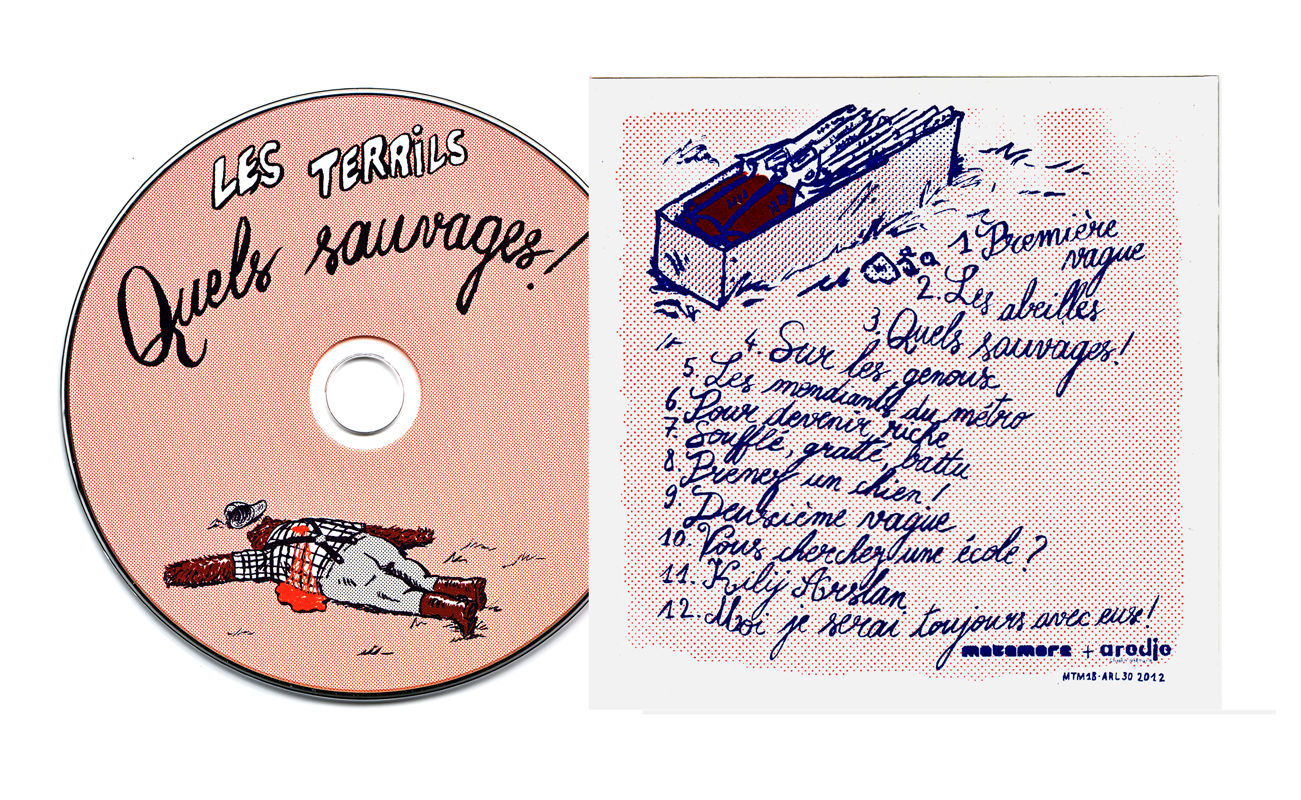 LES TERRILS
Quels sauvages!
1 Première
vague
2. Les abeilles
3. Quels sauvages!
4. Sur les genoux
5. Les mendiants du métro
6. Pour devenir riche
7. Soufflé, gratté, battu
8. Prenez un chien!
9. Deuxième vague
10. Vous cherchez une école?
11. Kilij Arslan
12. Moi je serai toujours avec eux!
matamore + arodje
MTM18·ARL30 2012